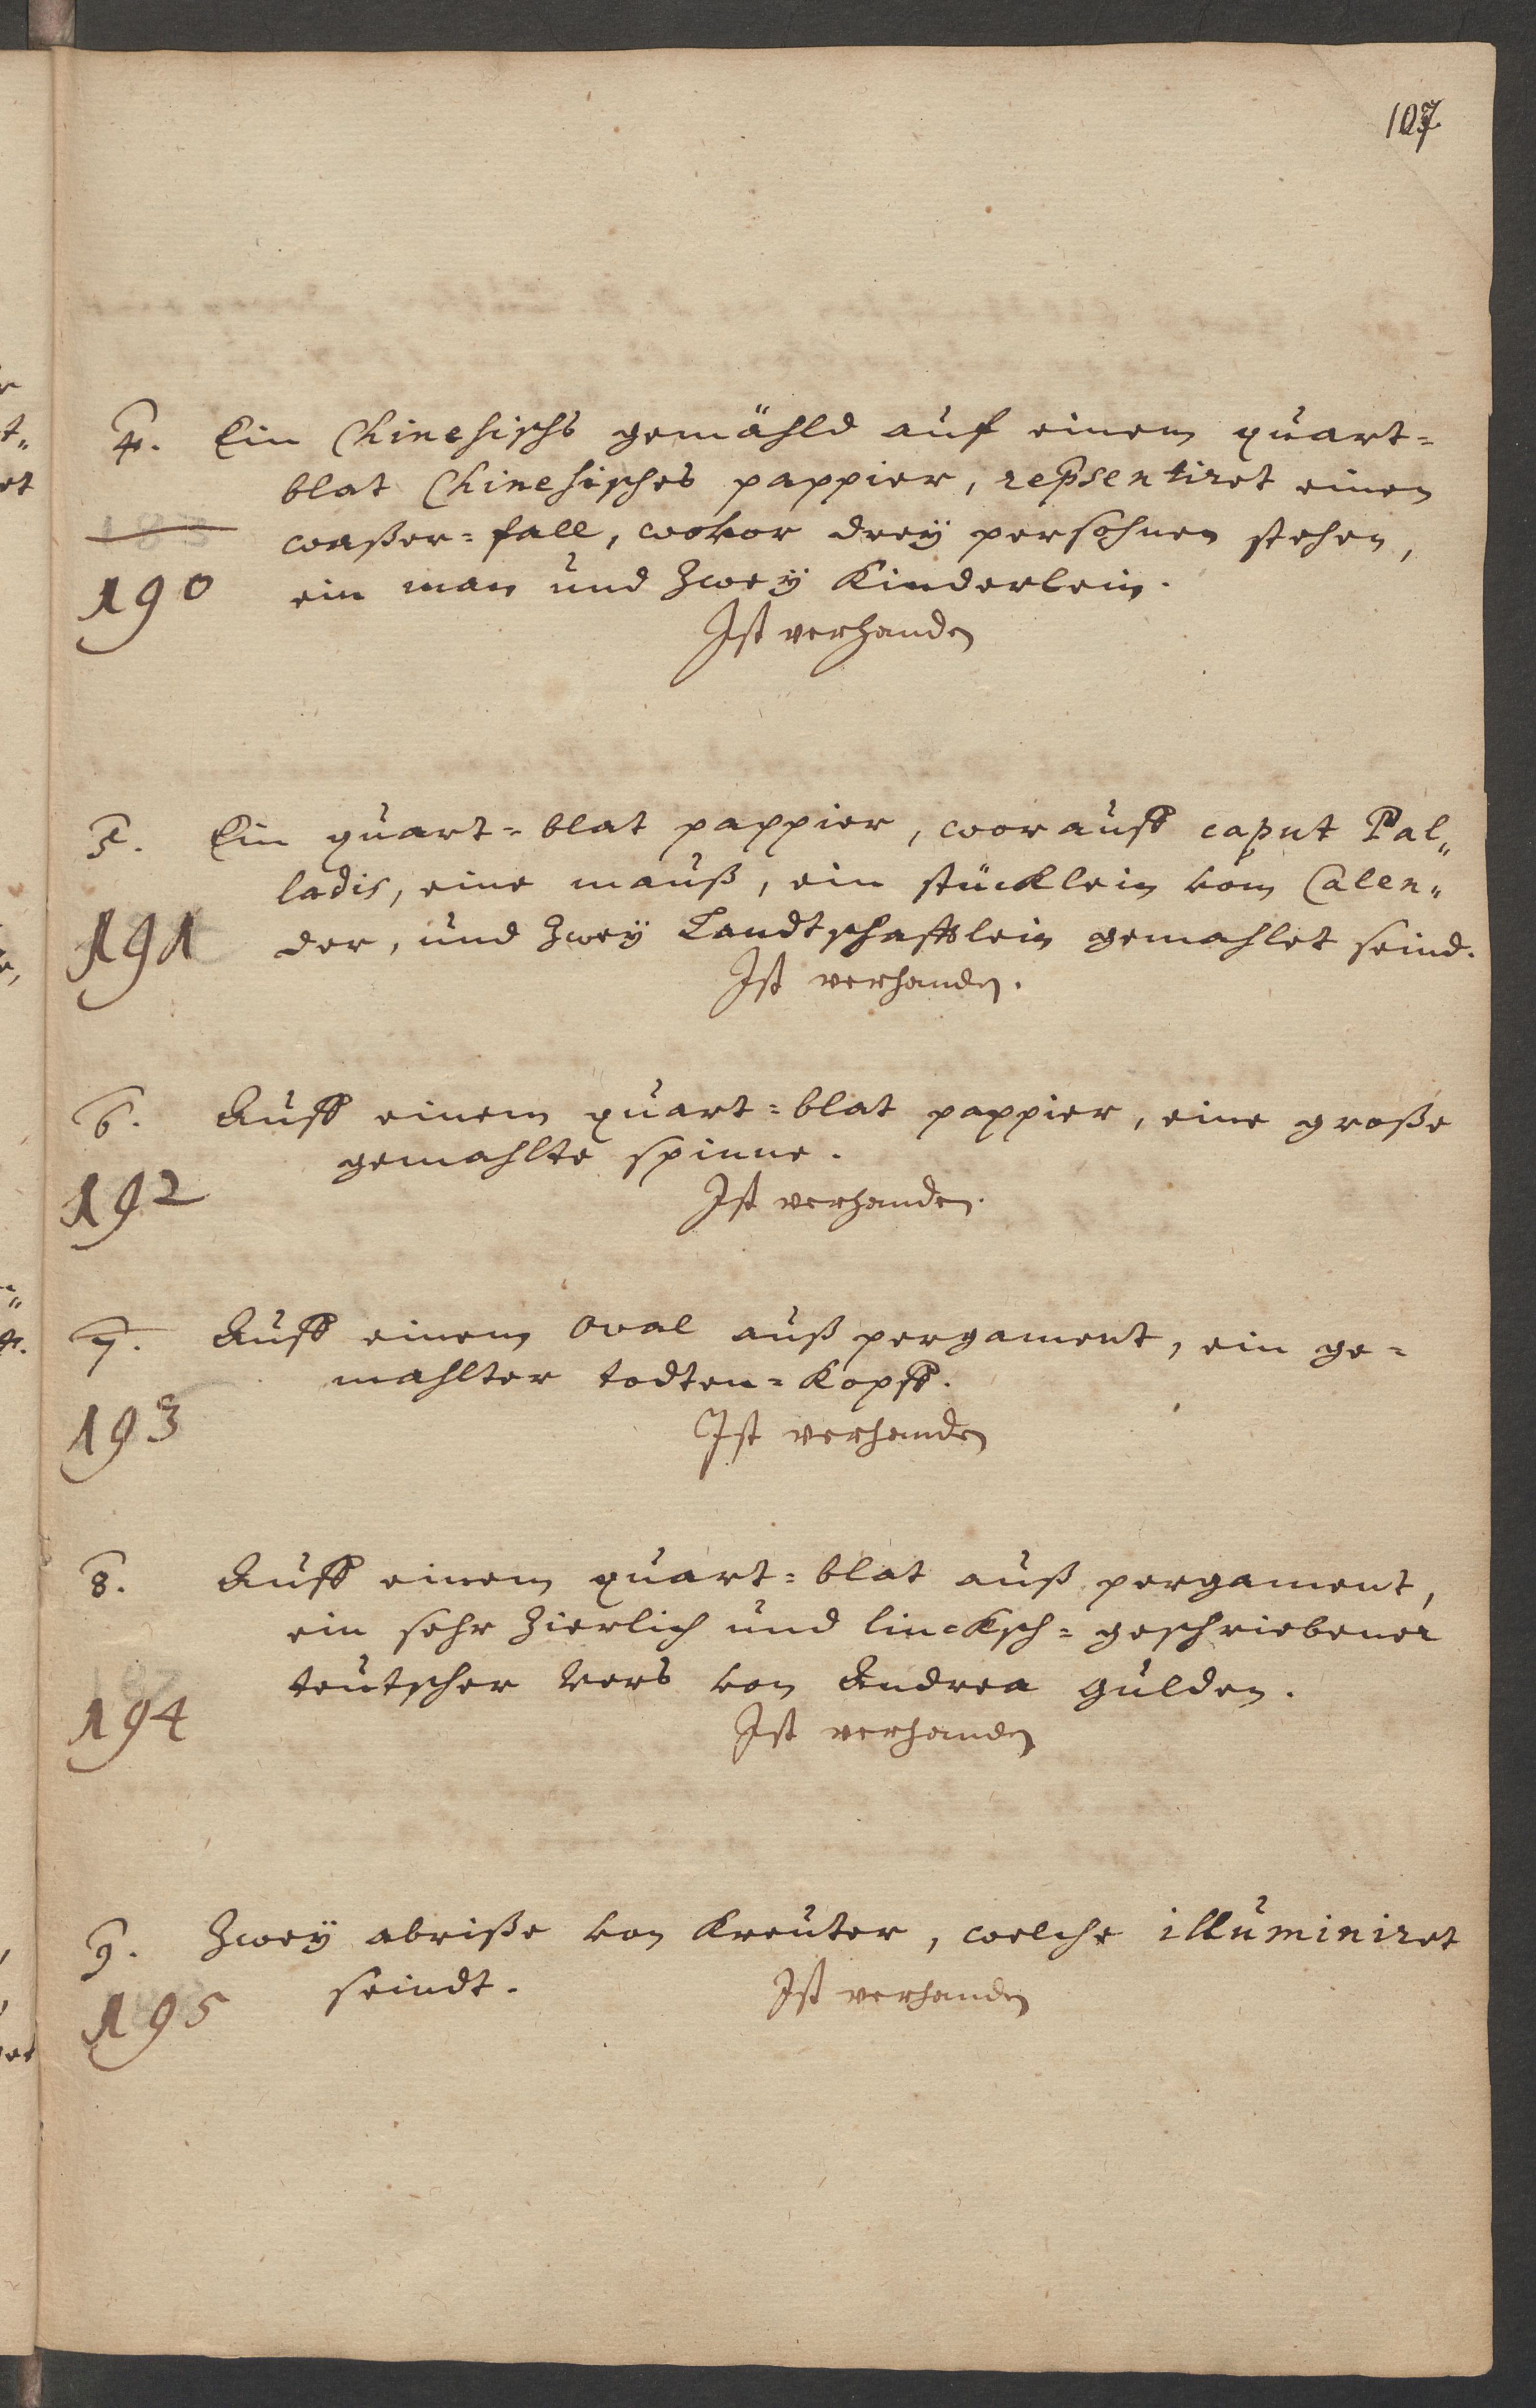 107
4. Ein Chinesischs gemähld auf einem quart=
blat Chinesisches pappier, rep̃sentiret einen
waßer=fall, wovor dreÿ persohnen stehen,
190 ein man und zweÿ Kinderlein.
Ist verhanden
5. Ein quart=blat pappier, worauff caput Pal„
ladis, eine mauß, ein stücklein vom Calen„
191 der, und zweÿ Landtschafftlein gemahlet seind.
Ist verhanden.
6. Auff einem quart=blat pappier, eine große
gemahlte spinne.
192 Ist verhanden.
7. Auff einem Oval auß pergament, ein ge=
mahlter todten=Kopff.
193 Ist verhanden
8. Auff einem quart=blat auß pergament,
ein sehr zierlich und lincksch=geschriebener
teutscher Vers von Andrea Gulden.
194 Ist verhanden
9. Zweÿ abriße von Kreuter, welche illuminiret
195 seindt. Ist verhanden